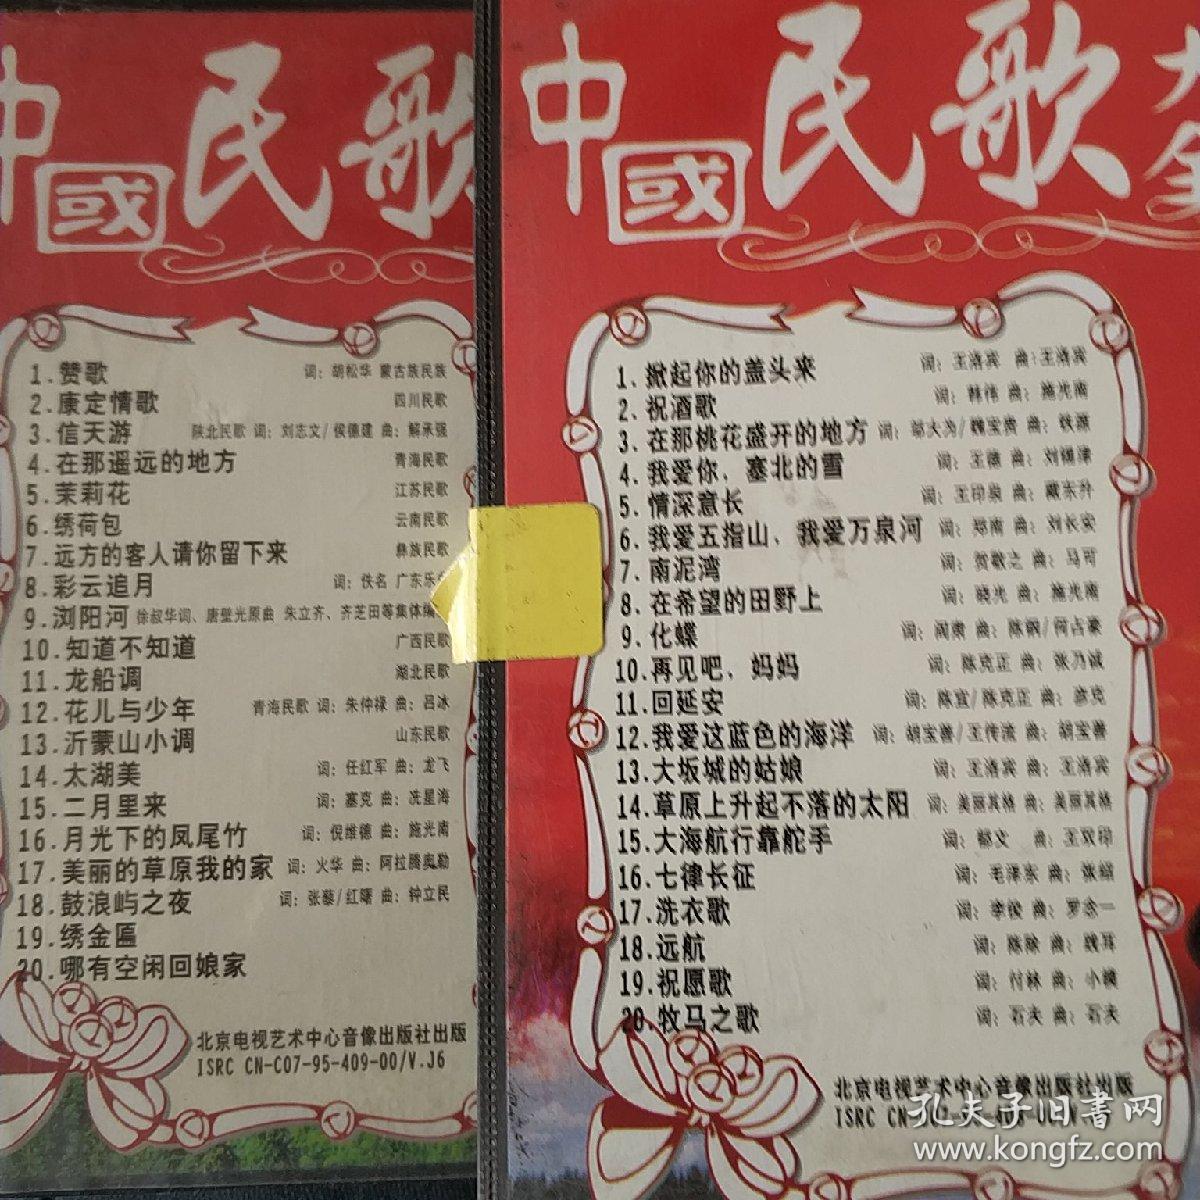 中國民歌
1.赞歌 词：胡松华 蒙古族民族
2.康定情歌 四川民歌
3.信天游 陕北民歌 词：刘志文/侯德建 曲：解承强
4.在那遥远的地方 青海民歌
5.茉莉花 江苏民歌
6.绣荷包 云南民歌
7.远方的客人请你留下来 彝族民歌
8.彩云追月 词：佚名 广东乐
9.浏阳河 徐叔华词、唐璧光原曲 朱立齐、齐芝田等集体编
10.知道不知道 广西民歌
11.龙船调 湖北民歌
12.花儿与少年 青海民歌 词：朱仲禄 曲：吕冰
13.沂蒙山小调 山东民歌
14.太湖美 词：任红军 曲：龙飞
15.二月里来 词：塞克 曲：冼星海
16.月光下的凤尾竹 词：倪维德 曲：施光南
17.美丽的草原我的家 词：火华 曲：阿拉腾奥勒
18.鼓浪屿之夜 词：张藜/红曙 曲：钟立民
19.绣金匾
20.哪有空闲回娘家
北京电视艺术中心音像出版社出版
ISRC CN-C07-95-409-00/V.J6
中國民歌大全
1.掀起你的盖头来 词：王洛宾 曲：王洛宾
2.祝酒歌 词：韩伟 曲：施光南
3.在那桃花盛开的地方 词：邬大为/魏宝贵 曲：铁源
4.我爱你、塞北的雪 词：王德 曲：刘锡津
5.情深意长 词：王印泉 曲：臧东升
6.我爱五指山、我爱万泉河 词：郑南 曲：刘长安
7.南泥湾 词：贺敬之 曲：马可
8.在希望的田野上 词：晓光 曲：施光南
9.化蝶 词：阎肃 曲：陈钢/何占豪
10.再见吧、妈妈 词：陈克正 曲：张乃诚
11.回延安 词：陈宜/陈克正 曲：彦克
12.我爱这蓝色的海洋 词：胡宝善/王传流 曲：胡宝善
13.大坂城的姑娘 词：王洛宾 曲：王洛宾
14.草原上升起不落的太阳 词：美丽其格 曲：美丽其格
15.大海航行靠舵手 词：郁文 曲：王双印
16.七律长征 词：毛泽东 曲：
17.洗衣歌 词：李俊 曲：罗念一
18.远航 词： 曲：
19.祝愿歌 词：付林 曲：
20.牧马之歌 词：石夫 曲：石夫
北京电视艺术中心音像出版社出版
ISRC CN
孔夫子旧书网
www.kongfz.com